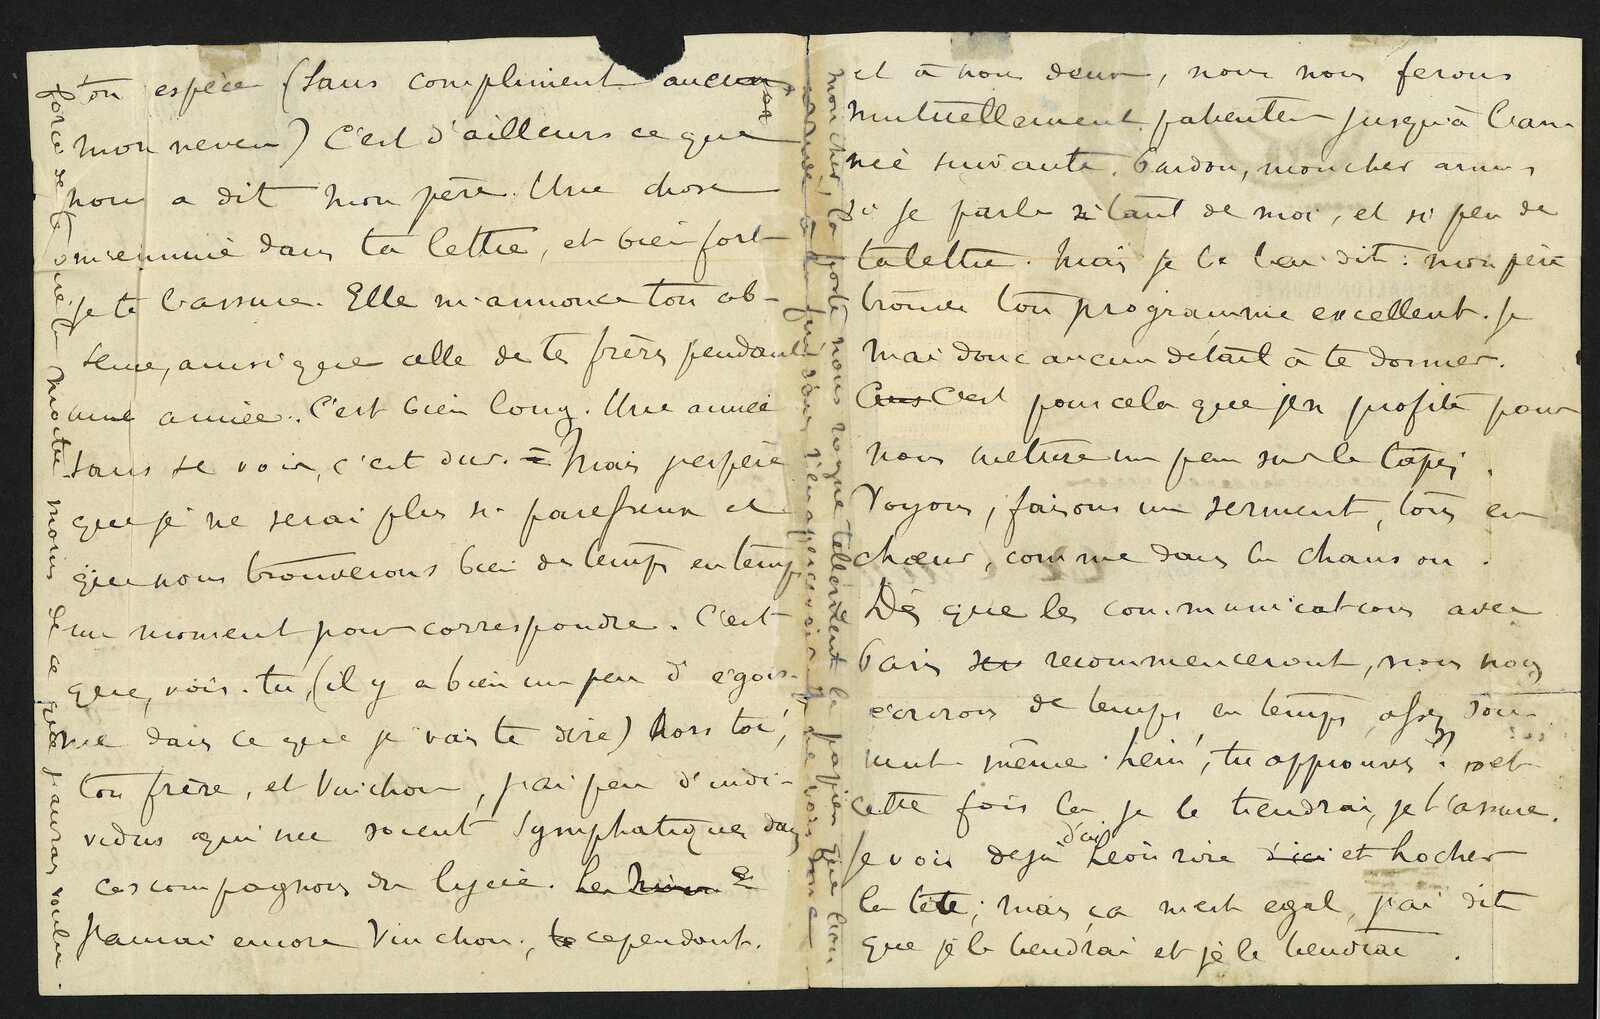 ton espèce (sans compliment aucun
mon neveu) C'est d'ailleurs ce que
nous a dit mon père. Une chose
m'ennuie dans ta lettre, et bien fort
je te l'assure. Elle m'annonce ton ab-
sence, ainsi que celle de tes frères pendant
une année. C'est bien long. Une année
sans se voir, c'est dur. = Mais j'espère
que je ne serai plus si paresseux et
que nous trouverons bien de temps en temps
un moment pour correspondre. C'est
que, vois-tu, (il y a bien un peu d'égoïs-
me dans ce que je vais te dire) hors toi,
ton frère, et Vuichon, j'ai peu d'indi-
vidus qui me soient symphatiques dans
ces compagnons du lycée.
J'aurai encore Vuichon, cependant.
force de te voir
moitié moins de ce que j'aurais voulu.
mon cher, la poste nous rogne tellement le papier que l'on
arrive à la fin sans s'en apercevoir
et à nous deux, nous nous ferons
mutuellement patienter jusqu'à l'an-
née suivante. Pardon, mon cher
si je parle si tant de moi, et si peu de
ta lettre. Mais je te l'ai dit : mon père
trouve ton programme excellent. Je
n'ai donc aucun détail à te donner.
C'est pour cela que j'en profite pour
nous mettre un peu sur le tapis.
Voyons, faisons un serment, tous en
chœur, comme dans la chanson.
Dès que les communications avec
Paris recommenceront, nous nous
écrirons de temps en temps, assez sou-
vent même. hein, tu approuves ? et
cette fois là je le tiendrai, je t'assure.
Je vois déjà d'ici Léon rire d'ici et hocher
la tête ; mais ça m'est égal, j'ai dit
que je le tiendrai et je le tiendrai.